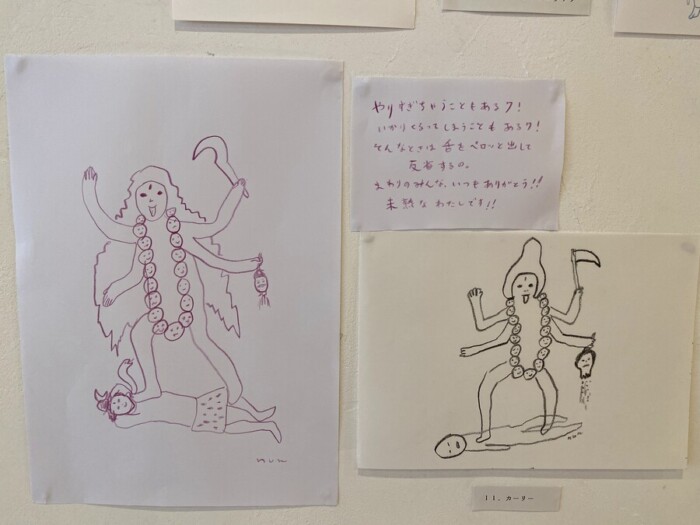 やりすぎちゃうこともあるワ!
いかりくるってしまうことも あるワ!
そんなときは 舌をペロッと出して
反省するの。
まわりのみんな、いつもありがとう!!
未熟な わたしです!!
nun
nun
11. カーリー